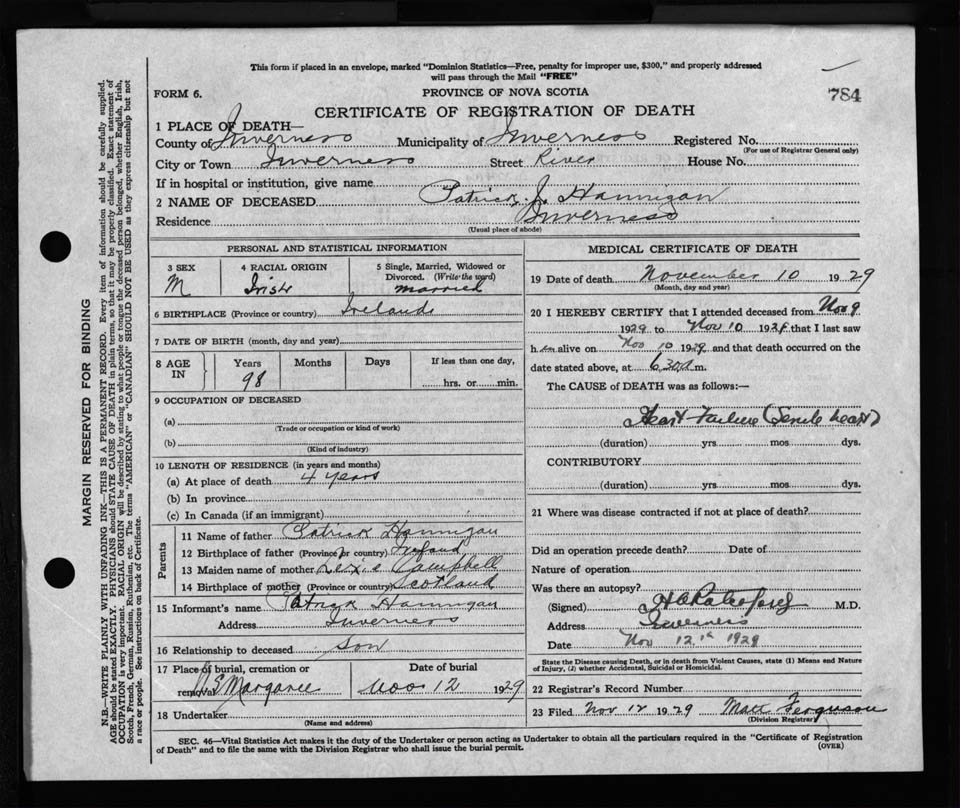 This form if placed in an envelope, marked "Dominion Statistics—Free, penalty for improper use, $300," and properly addressed
will pass through the Mail "FREE"
FORM 6.
PROVINCE OF NOVA SCOTIA
784
CERTIFICATE OF REGISTRATION OF DEATH
1 PLACE OF DEATH—
County of Inverness Municipality of Inverness Registered No.
(For use of Registrar General only)
City or Town Inverness Street River House No.
If in hospital or institution, give name
2 NAME OF DECEASED Patrick J. Hannigan
Residence Inverness
(Usual place of abode)
PERSONAL AND STATISTICAL INFORMATION
3 SEX
M
4 RACIAL ORIGIN
Irish
5 Single, Married, Widowed or
Divorced. (Write the word)
married
6 BIRTHPLACE (Province or country) Ireland
7 DATE OF BIRTH (month, day and year)
8 AGE
IN
Years
98
Months
Days
If less than one day,
hrs. or min.
9 OCCUPATION OF DECEASED
(a)
(Trade or occupation or kind of work)
(b)
(Kind of industry)
10 LENGTH OF RESIDENCE (in years and months)
(a) At place of death 4 years
(b) In province
(c) In Canada (if an immigrant)
Parents
11 Name of father Patrick Hannigan
12 Birthplace of father (Province or country)
13 Maiden name of mother Campbell
14 Birthplace of mother (Province or country) Scotland
15 Informant's name Patrick Hannigan
Address Inverness
16 Relationship to deceased Son
17 Place of burial, cremation or
removal Margaree
Date of burial
Nov 12 1929
18 Undertaker
(Name and address)
MEDICAL CERTIFICATE OF DEATH
19 Date of death November 10 1929
(Month, day and year)
20 I HEREBY CERTIFY that I attended deceased from Nov 9
1929 to Nov 10 1929 that I last saw
him alive on Nov 10 1929 and that death occurred on the
date stated above, at 6.30 a m.
The CAUSE of DEATH was as follows:—
Heart Failure (Senile heart)
(duration) yrs mos dys.
CONTRIBUTORY
(duration) yrs. mos. dys.
21 Where was disease contracted if not at place of death?
Did an operation precede death? Date of
Nature of operation
Was there an autopsy?
(Signed) M.D.
Address Inverness
Date Nov 12th 1929
State the Disease causing Death, or in death from Violent Causes, state (1) Means and Nature
of Injury, (2) whether Accidental, Suicidal or Homicidal.
22 Registrar's Record Number
23 Filed Nov 12 1929 Matt Ferguson
(Division Registrar)
SEC. 46—Vital Statistics Act makes it the duty of the Undertaker or person acting as Undertaker to obtain all the particulars required in the "Certificate of Registration
of Death" and to file the same with the Division Registrar who shall issue the burial permit.
(OVER)
MARGIN RESERVED FOR BINDING
N.B.—WRITE PLAINLY WITH UNFADING INK—THIS IS A PERMANENT RECORD. Every item of information should be carefully supplied.
AGE should be stated EXACTLY. PHYSICIANS should STATE CAUSE OF DEATH in plain terms, so that it may be properly classified. Exact statement of
OCCUPATION is very important. RACIAL ORIGIN will be described by stating to what people or tongue the deceased person belonged, whether English, Irish,
Scotch, French, German, Russian, Ruthenian, etc. The terms "AMERICAN" or "CANADIAN" SHOULD NOT BE USED as they express citizenship but not
a race or people. See instructions on back of Certificate.